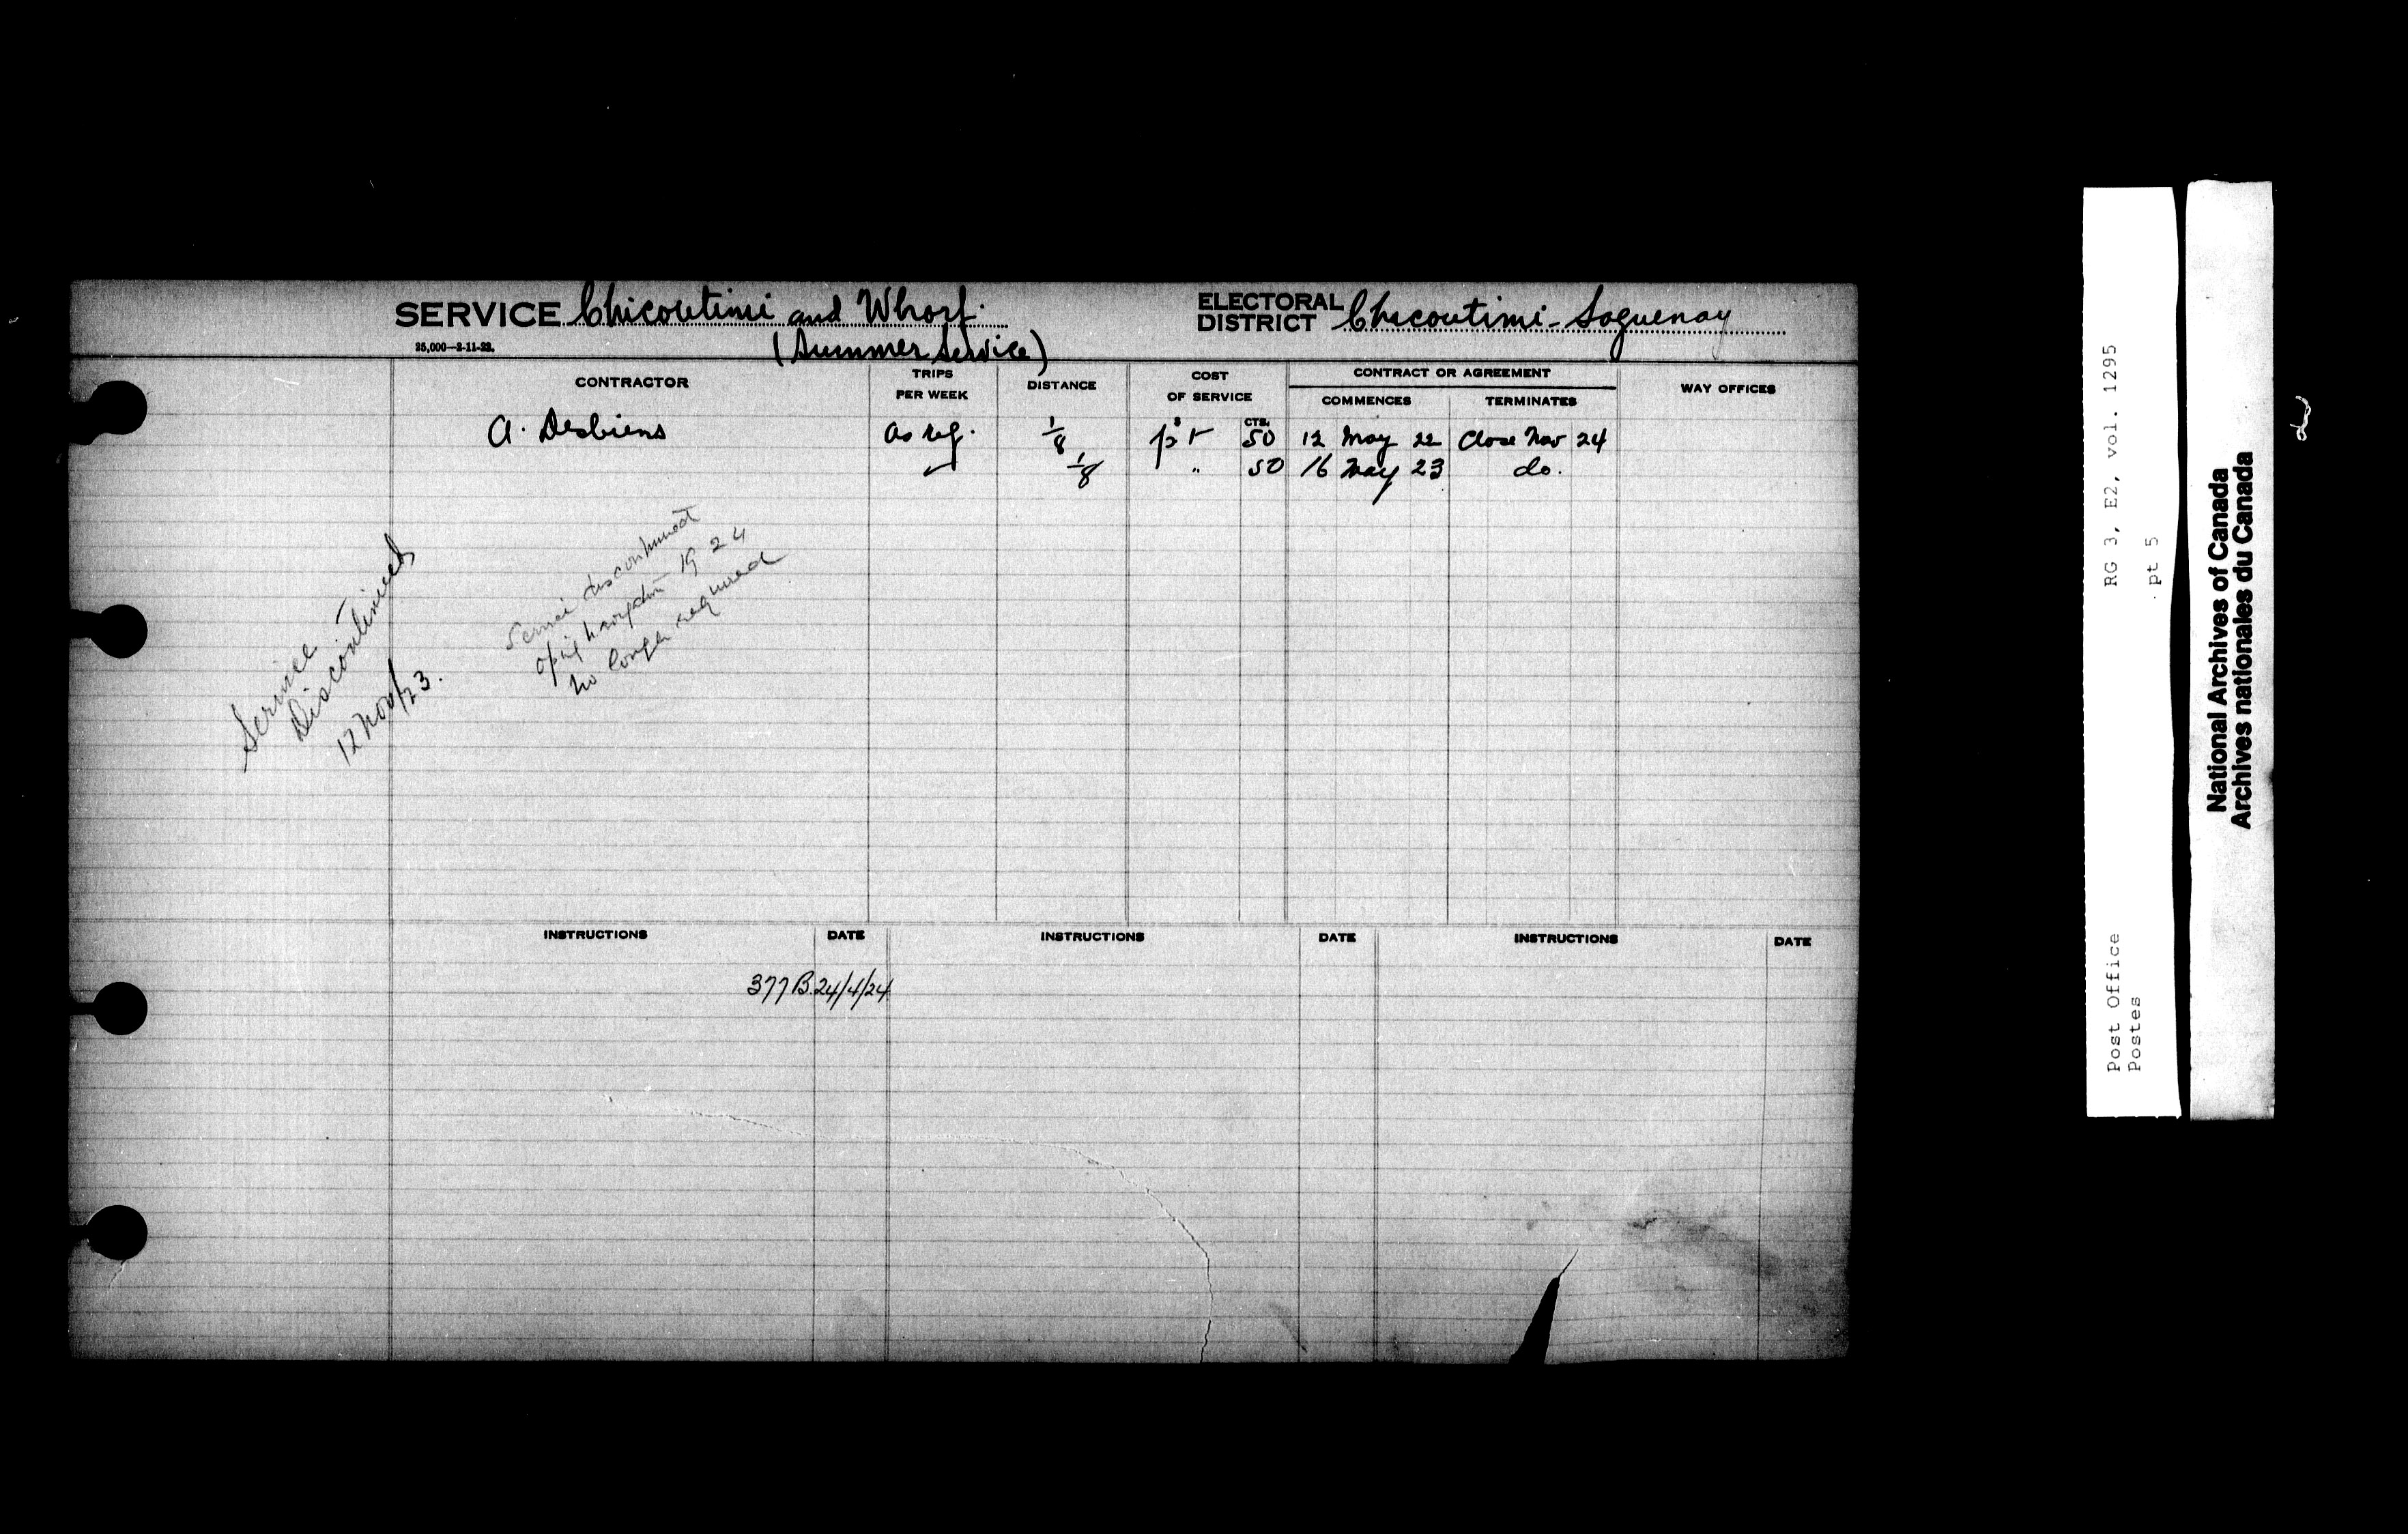 SERVICE Chicoutimi and Wharf.
(Summer Service)
25,000—2-11-22.
ELECTORAL DISTRICT Chicoutimi-Saguenay
CONTRACTOR
TRIPS PER WEEK
DISTANCE
COST OF SERVICE
CONTRACT OR AGREEMENT
COMMENCES
TERMINATES
WAY OFFICES
$ CTS.
A. Desbiens as req. 1/8 50 12 May 22 Close Nav 24
1/8 " 50 16 May 23 do.
Service discontinued
navigation 1924
no longer required
Service
Discontinued
12 Nov/23.
INSTRUCTIONS DATE INSTRUCTIONS DATE INSTRUCTIONS DATE
377B. 24/4/24
RG 3, E2, vol. 1295
pt 5
Post Office
Postes
National Archives of Canada
Archives nationales du Canada